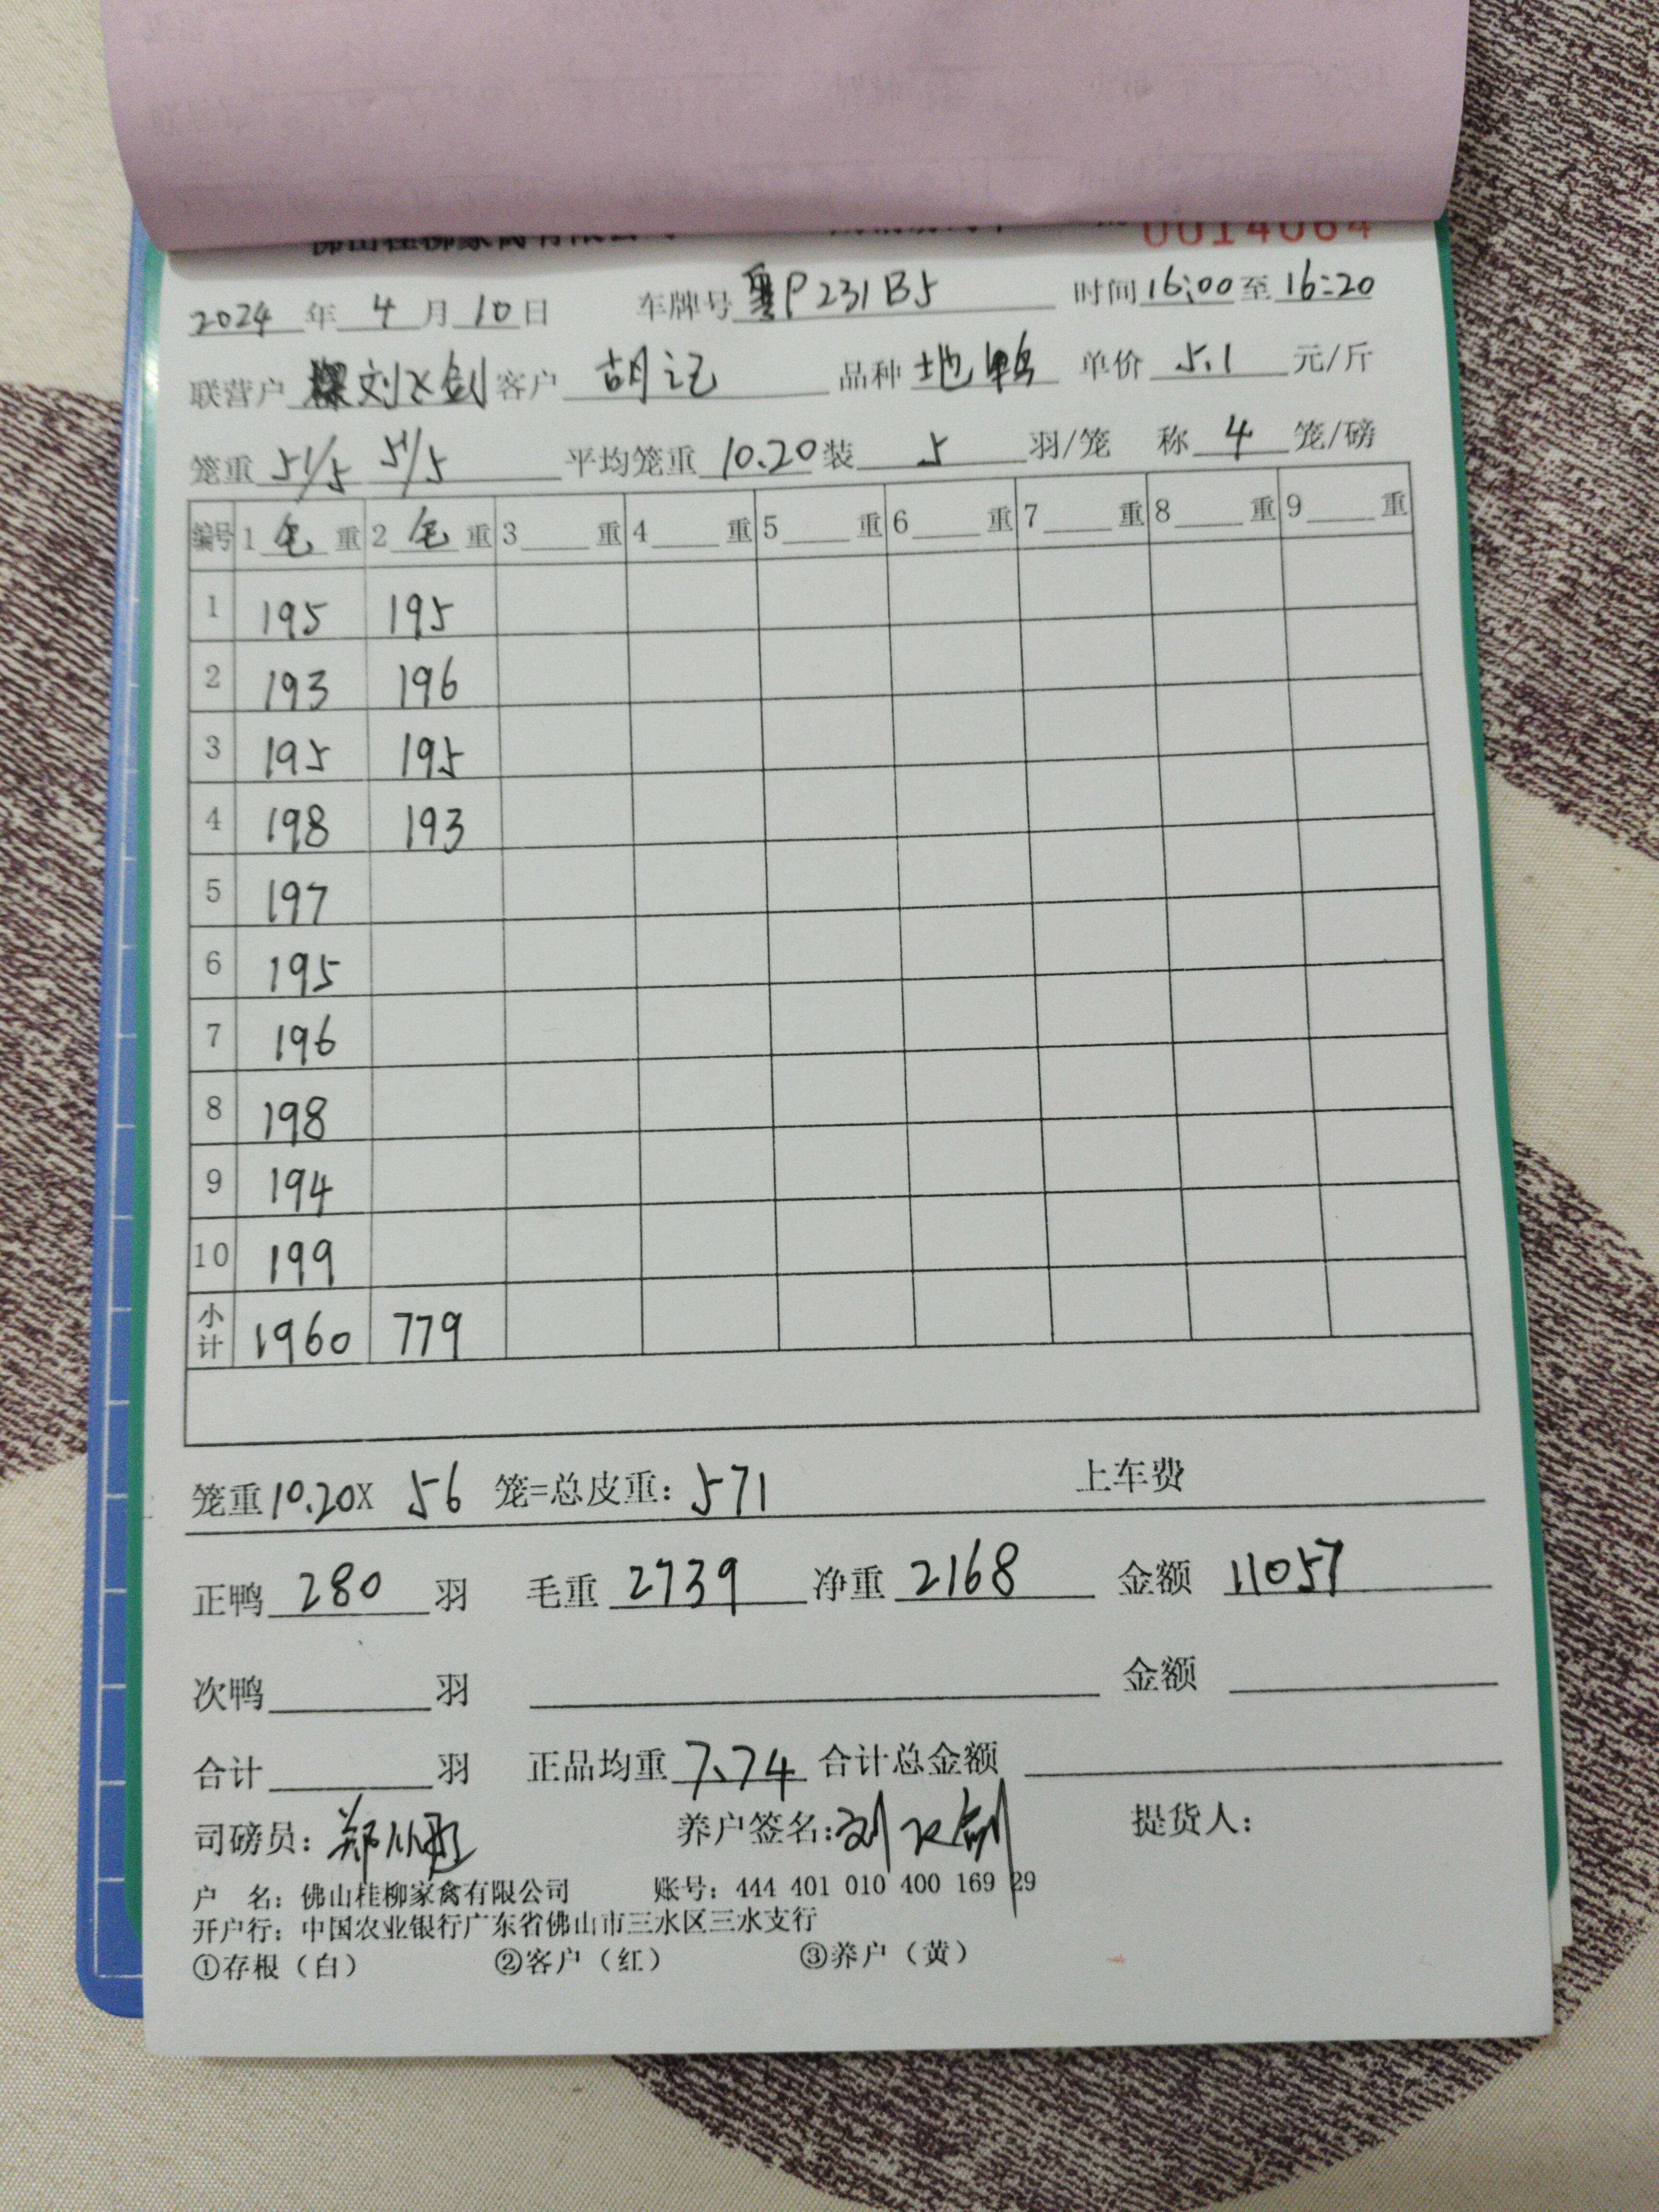 0014064
2024 年 4 月 10 日 车牌号 粤P231B5 时间 16:00 至 16:20
联营户 刘飞剑 客户 胡记 品种 地鸭 单价 5.1 元/斤
笼重 51/5 51/5 平均笼重 10.20 装 5 羽/笼 称 4 笼/磅
编号 1 毛 重 2 毛 重 3 重 4 重 5 重 6 重 7 重 8 重 9 重
1 195 195
2 193 196
3 195 195
4 198 193
5 197
6 195
7 196
8 198
9 194
10 199
小计 1960 779
笼重 10.20 X 56 笼=总皮重: 571 上车费
正鸭 280 羽 毛重 2739 净重 2168 金额 11057
次鸭 羽 金额
合计 羽 正品均重 7.74 合计总金额
司磅员: 养户签名: 刘飞剑 提货人:
户 名: 佛山桂柳家禽有限公司 账号: 444 401 010 400 169 29
开户行: 中国农业银行广东省佛山市三水区三水支行
①存根（白） ②客户（红） ③养户（黄）